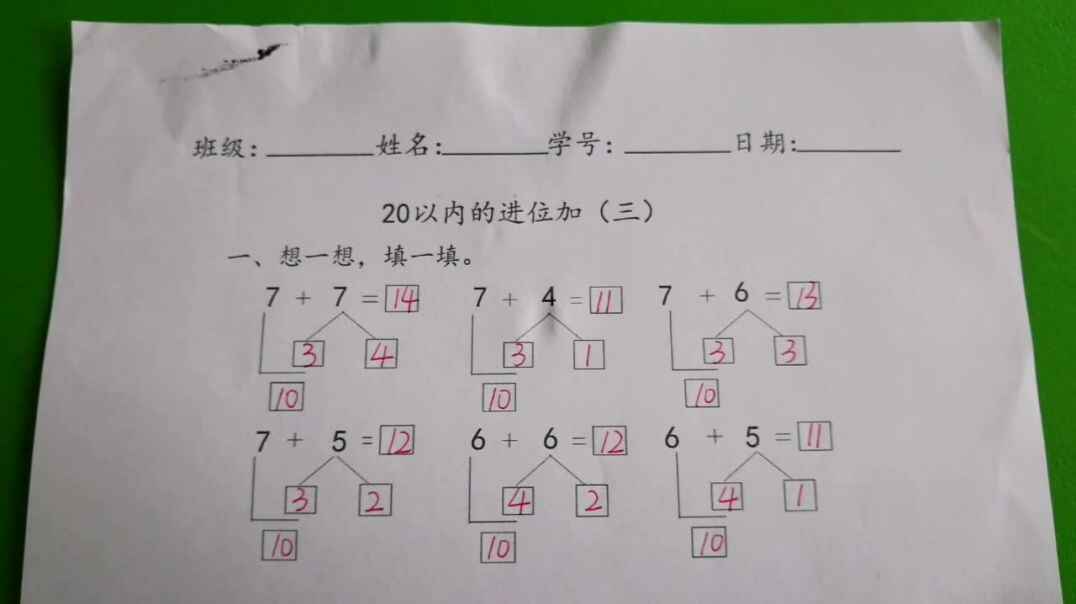 班级:________姓名:________学号:________日期:________
20以内的进位加（三）
一、想一想，填一填。
7 + 7 = 14 7 + 4 = 11 7 + 6 = 13
3 4 3 1 3 3
10 10 10
7 + 5 = 12 6 + 6 = 12 6 + 5 = 11
3 2 4 2 4 1
10 10 10